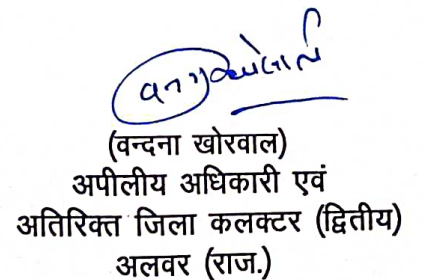 (वन्दना खोरवाल)
अपीलीय अधिकारी एवं
अतिरिक्त जिला कलक्टर (द्वितीय)
अलवर (राज.)